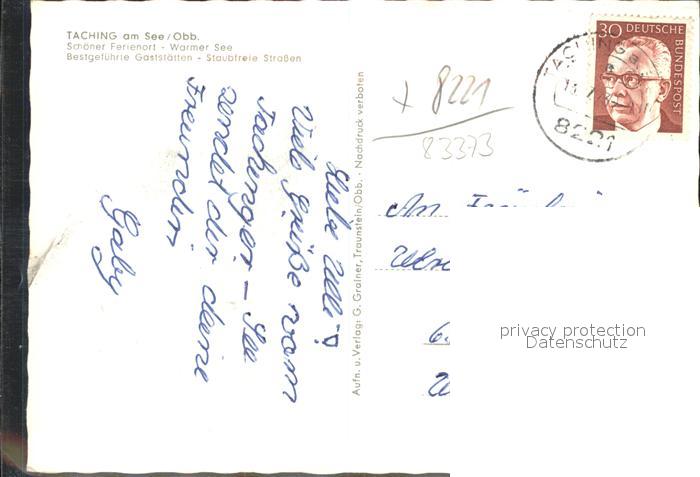 TACHING am See/Obb.
Schöner Ferienort - Warmer See
Bestgeführte Gaststätten - Staubfreie Straßen
Liebe Ulli!
Viele Grüße vom
Tachinger-See
sendet dir deine
Freundin
Gaby
Aufn. u. Verlag: G. Grainer, Traunstein/Obb. · Nachdruck verboten
+ 8221
83373
30 DEUTSCHE
BUNDESPOST
TACHING a
8221
An
6.
privacy protection
Datenschutz